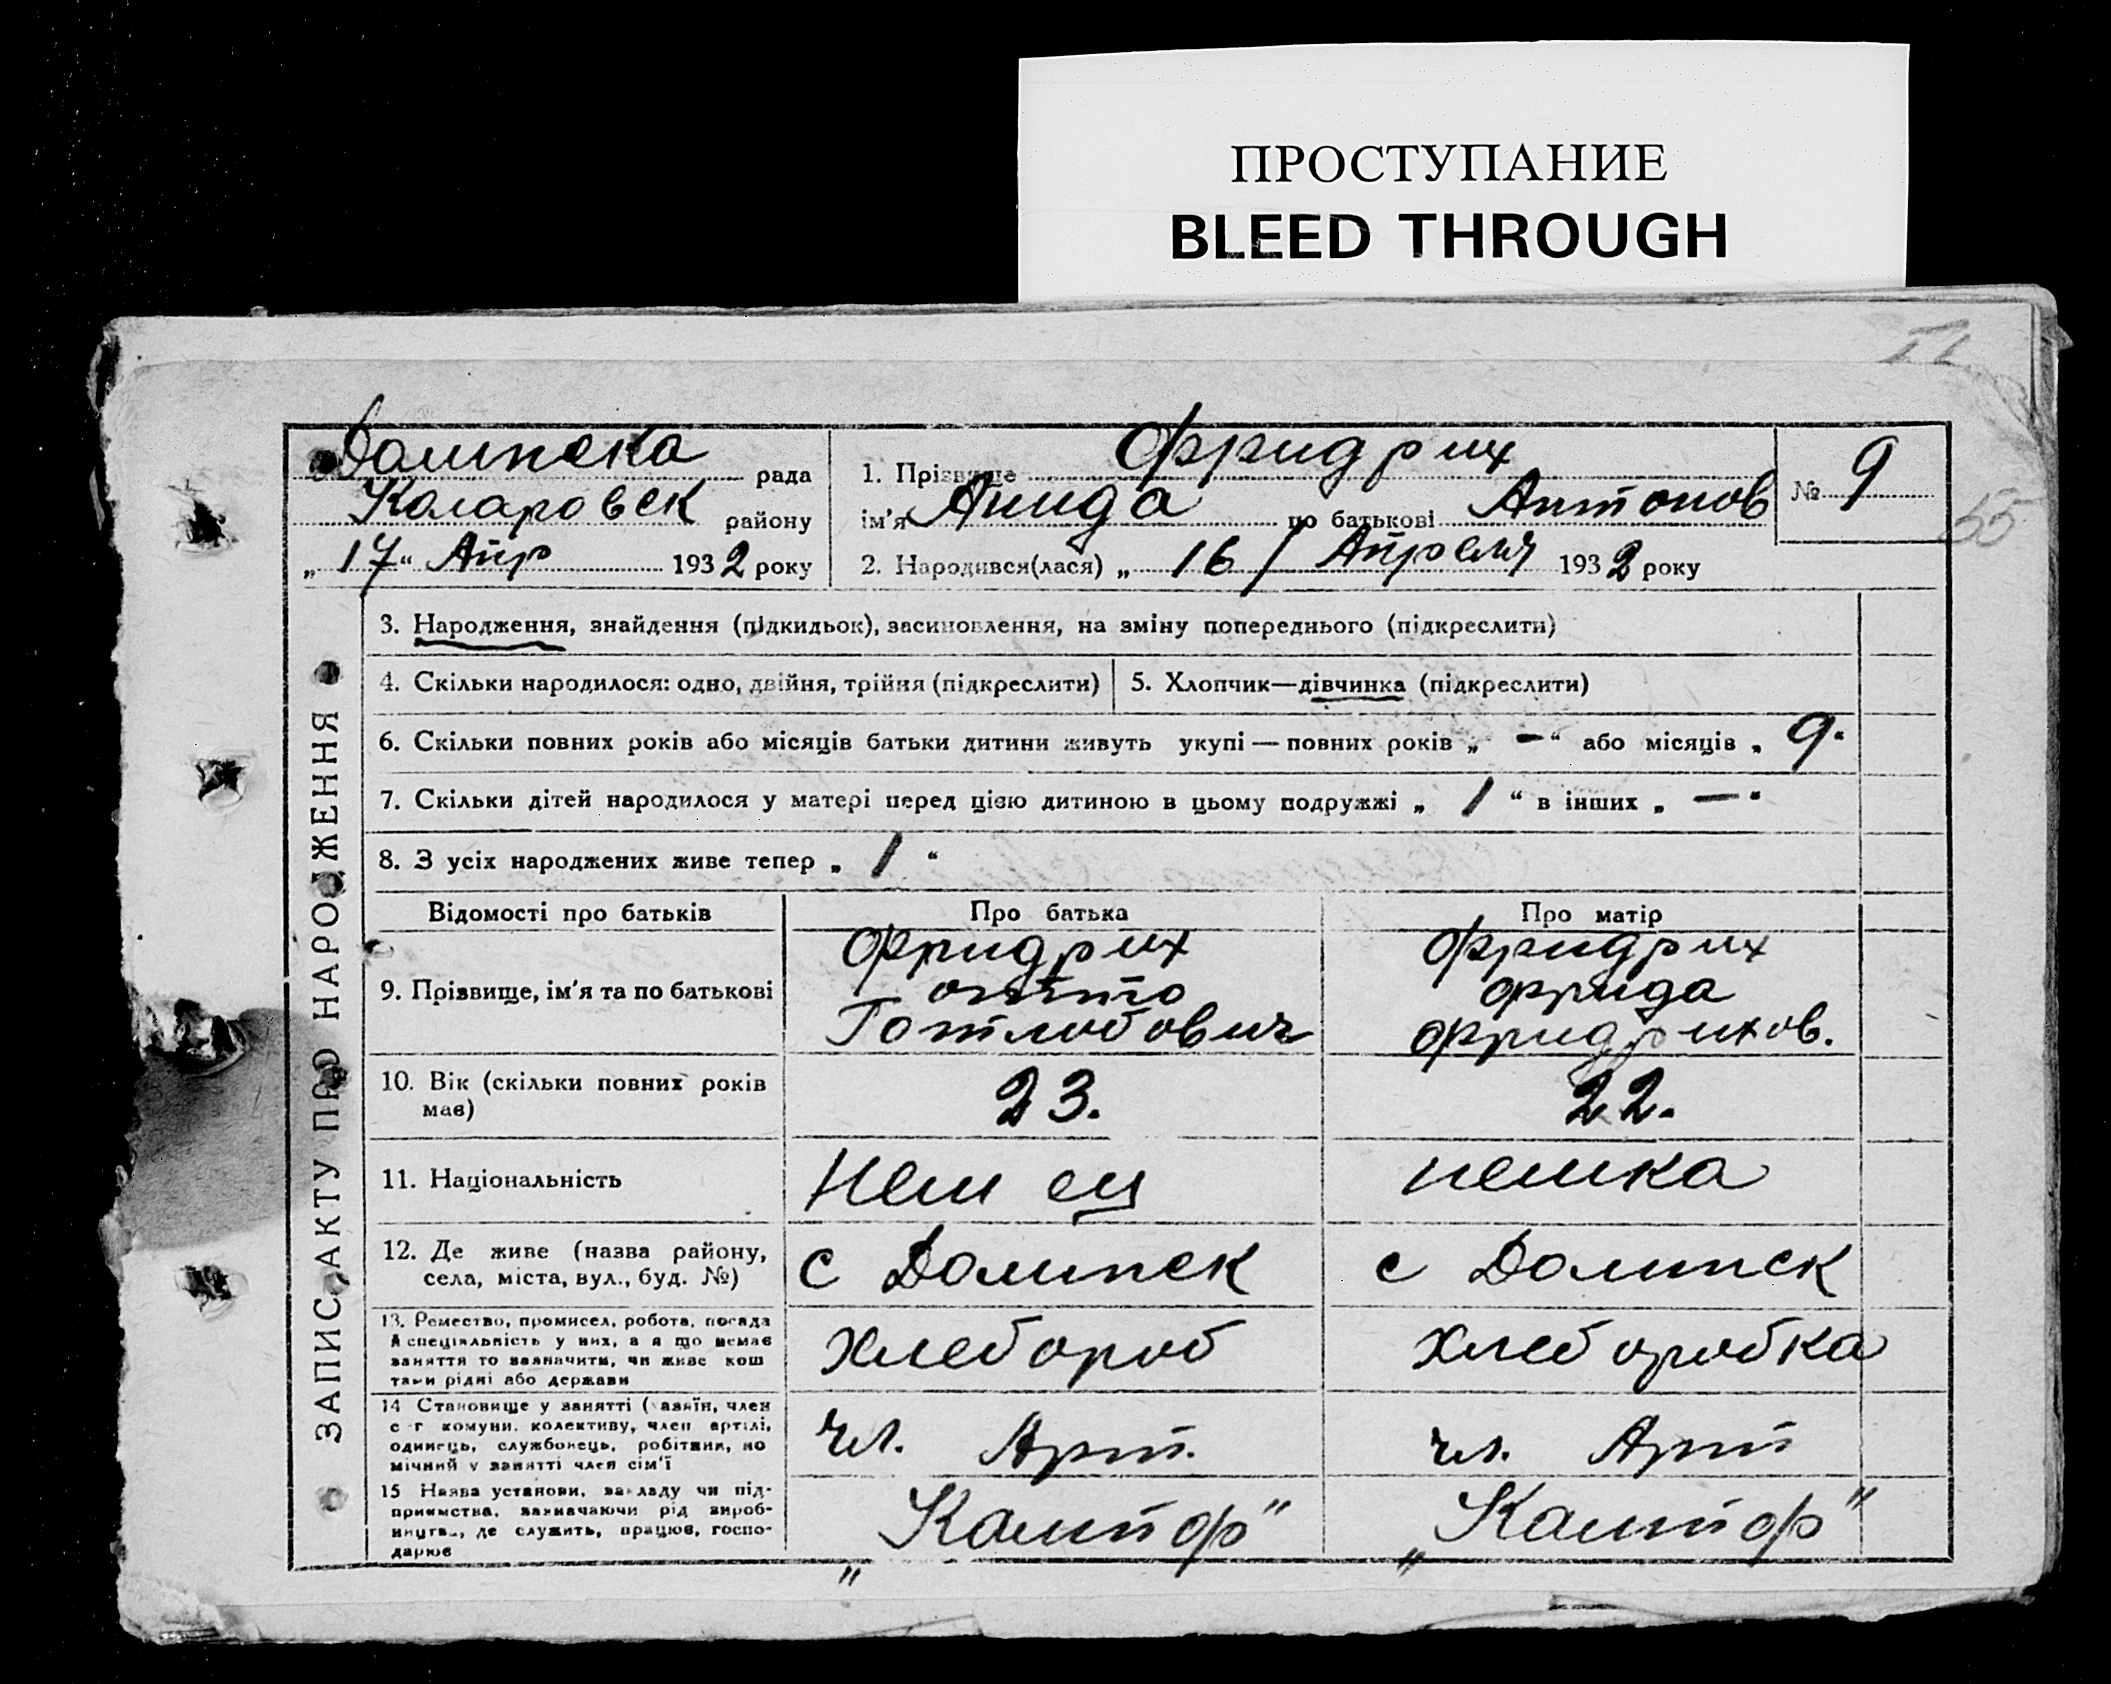 ПРОСТУПАНИЕ
BLEED THROUGH
55
Долинска рада
Коларовск району
„ 17 “ Апр 1932 року
1. Прізвище Фридрих
ім'я Анида по батькові Антонов
2. Народився(лася) „ 16 / Апреля 1932 року
№ 9
ЗАПИС АКТУ ПРО НАРОДЖЕННЯ
3. Народження, знайдення (підкидьок), засиновлення, на зміну попереднього (підкреслити)
4. Скільки народилося: одно, двійня, трійня (підкреслити)
5. Хлопчик—дівчинка (підкреслити)
6. Скільки повних років або місяців батьки дитини живуть укупі — повних років „ — “ або місяців „ 9.
7. Скільки дітей народилося у матері перед цією дитиною в цьому подружжі „ 1 “ в інших „ — “
8. З усіх народжених живе тепер „ 1 “
Відомості про батьків
Про батька
Про матір
9. Прізвище, ім'я та по батькові
Фридрих
Отто
Готлобович
Фридрих
Фрида
Фридрихов.
10. Вік (скільки повних років
має)
23.
22.
11. Національність
Немец
немка
12. Де живе (назва району,
села, міста, вул., буд. №)
с Долинск
с Долинск
13. Ремество, промисел, робота, посада
й спеціяльність у них, а я що немає
заняття то зазначити, чи живе кош
тами рідні або держави
Хлебороб
Хлеборобка
14 Становище у занятті (хазяїн, член
с-г комуни, колективу, член артілі,
одинець, службовець, робітник, по
мічний у занятті член сім'ї
чл. Арт.
чл. Арт
15 Назва установи, закладу чи під-
приємства, зазначаючи рід вироб-
ництва, де служить, працює, госпо-
дарює
„Кампф"
„Кампф"